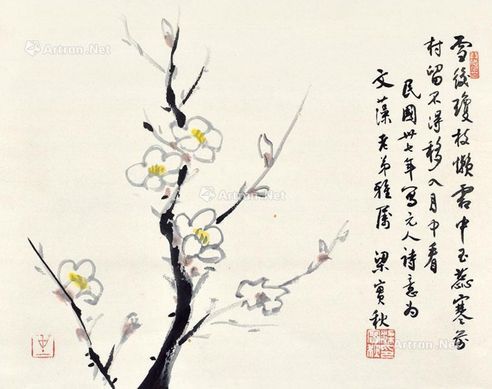 雪後瓊枝懶霜中玉蕊寒前
村留不得移入月中看
民國卅七年寫元人詩意為
文藻老弟雅屬 梁實秋
Artron.Net
Artron.Net
Artron.Net
Artron.Net